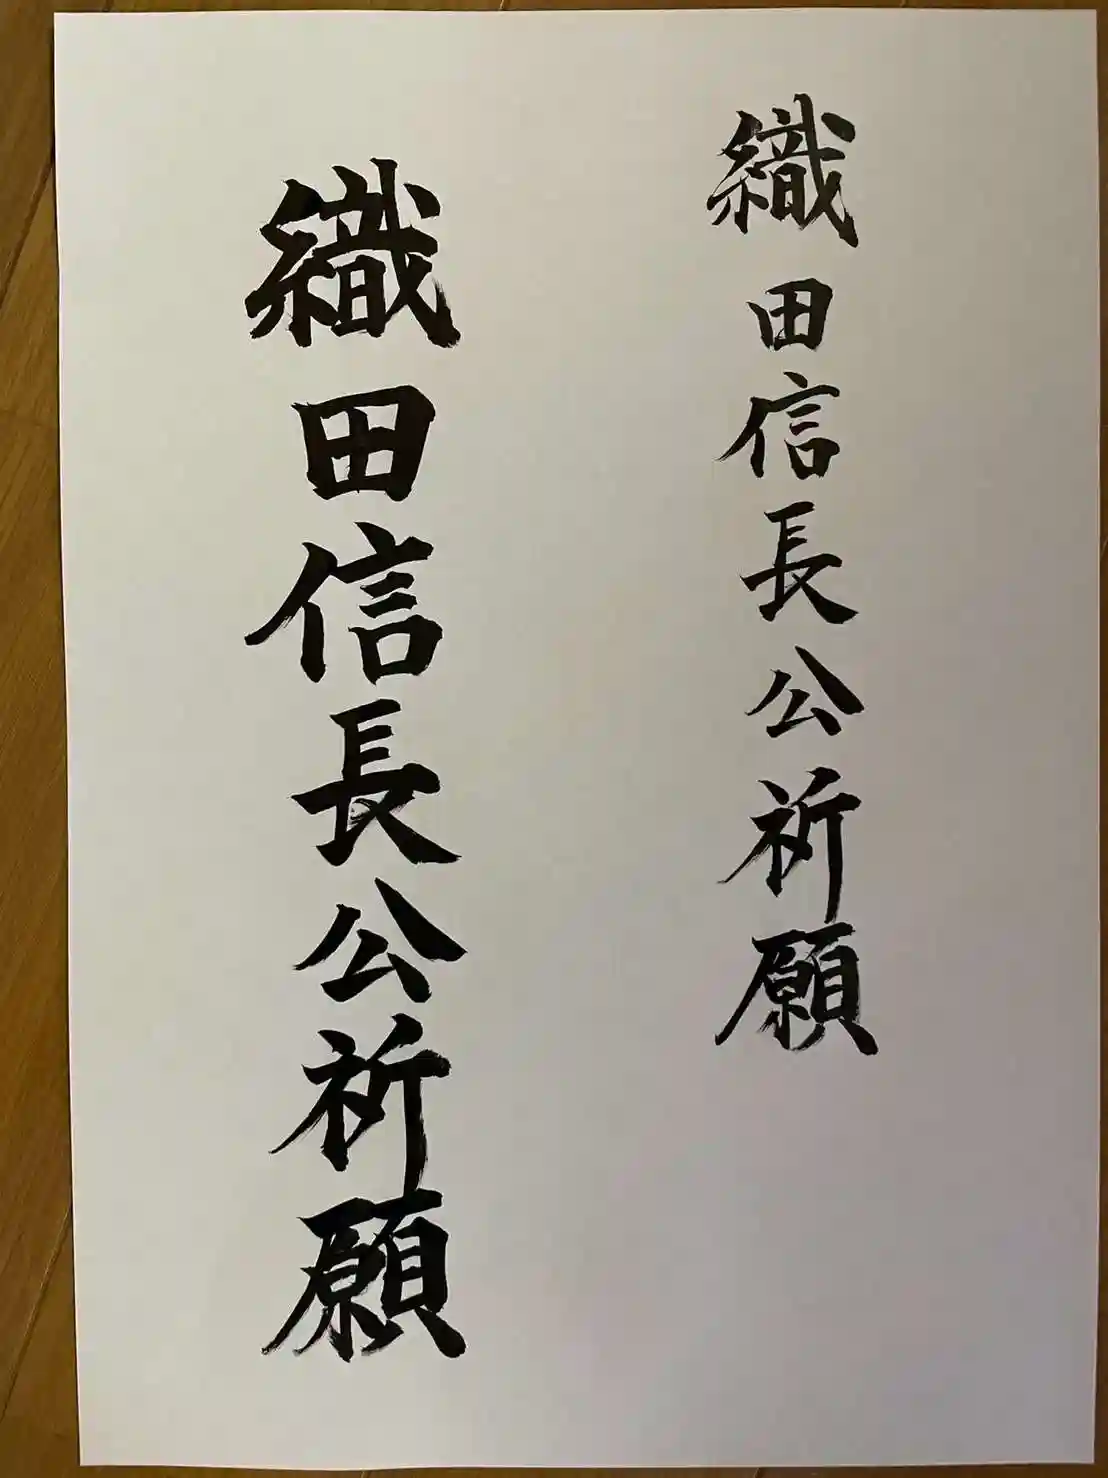 織田信長公祈願
織田信長公祈願